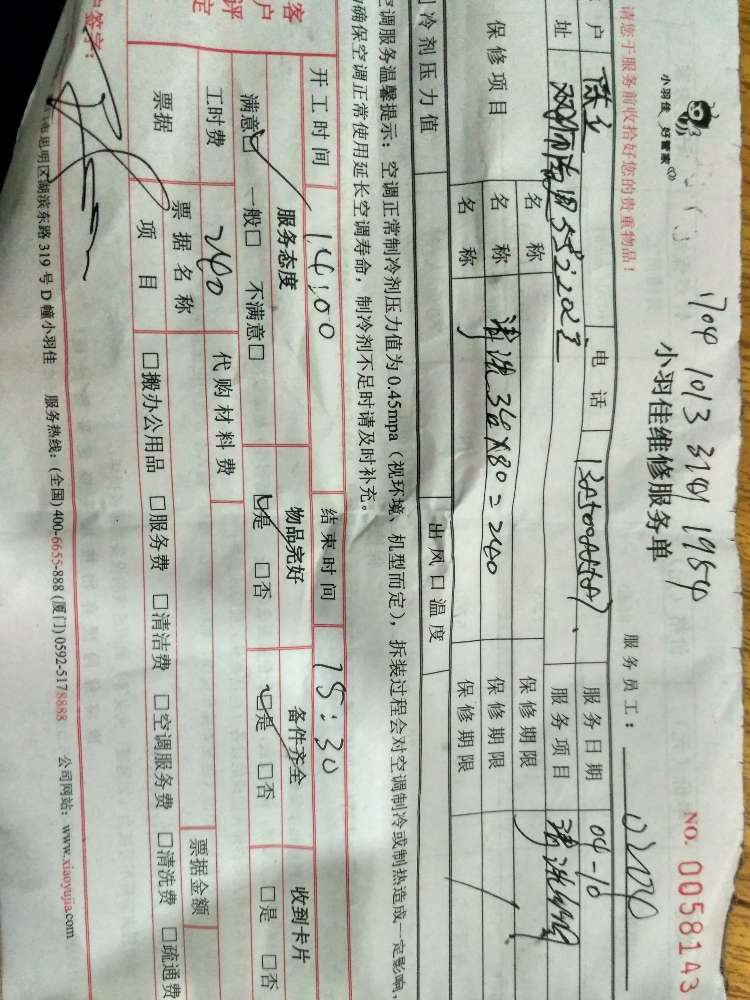 小羽佳 好管家
1704 1013 3101 1954
NO. 0058143
小羽佳维修服务单
请您于服务前收拾好您的贵重物品!
服务员工:
户 电话 服务日期 04-10
址 服务项目 清洗
保修项目 名称 保修期限
名称 清洗3台×80=240 保修期限
名称 保修期限
制冷剂压力值 出风口温度
空调服务温馨提示:空调正常制冷剂压力值为0.45mpa(视环境、机型而定),拆装过程会对空调制冷或制热造成一定影响,
确保空调正常使用延长空调寿命,制冷剂不足时请及时补充。
开工时间 14:00 结束时间 15:30
客户评定 服务态度 物品完好 备件齐全 收到卡片
满意□ 一般□ 不满意□ □是 □否 □是 □否 □是 □否
工时费 240 代购材料费 票据金额
票据 票据名称
项目 □搬办公用品 □服务费 □清洁费 □空调服务费 □清洗费 □疏通费
户签字:
思明区湖滨东路319号D幢小羽佳 服务热线:(全国)400-6655-888 (厦门)0592-5178888 公司网站:www.xiaoyujia.com